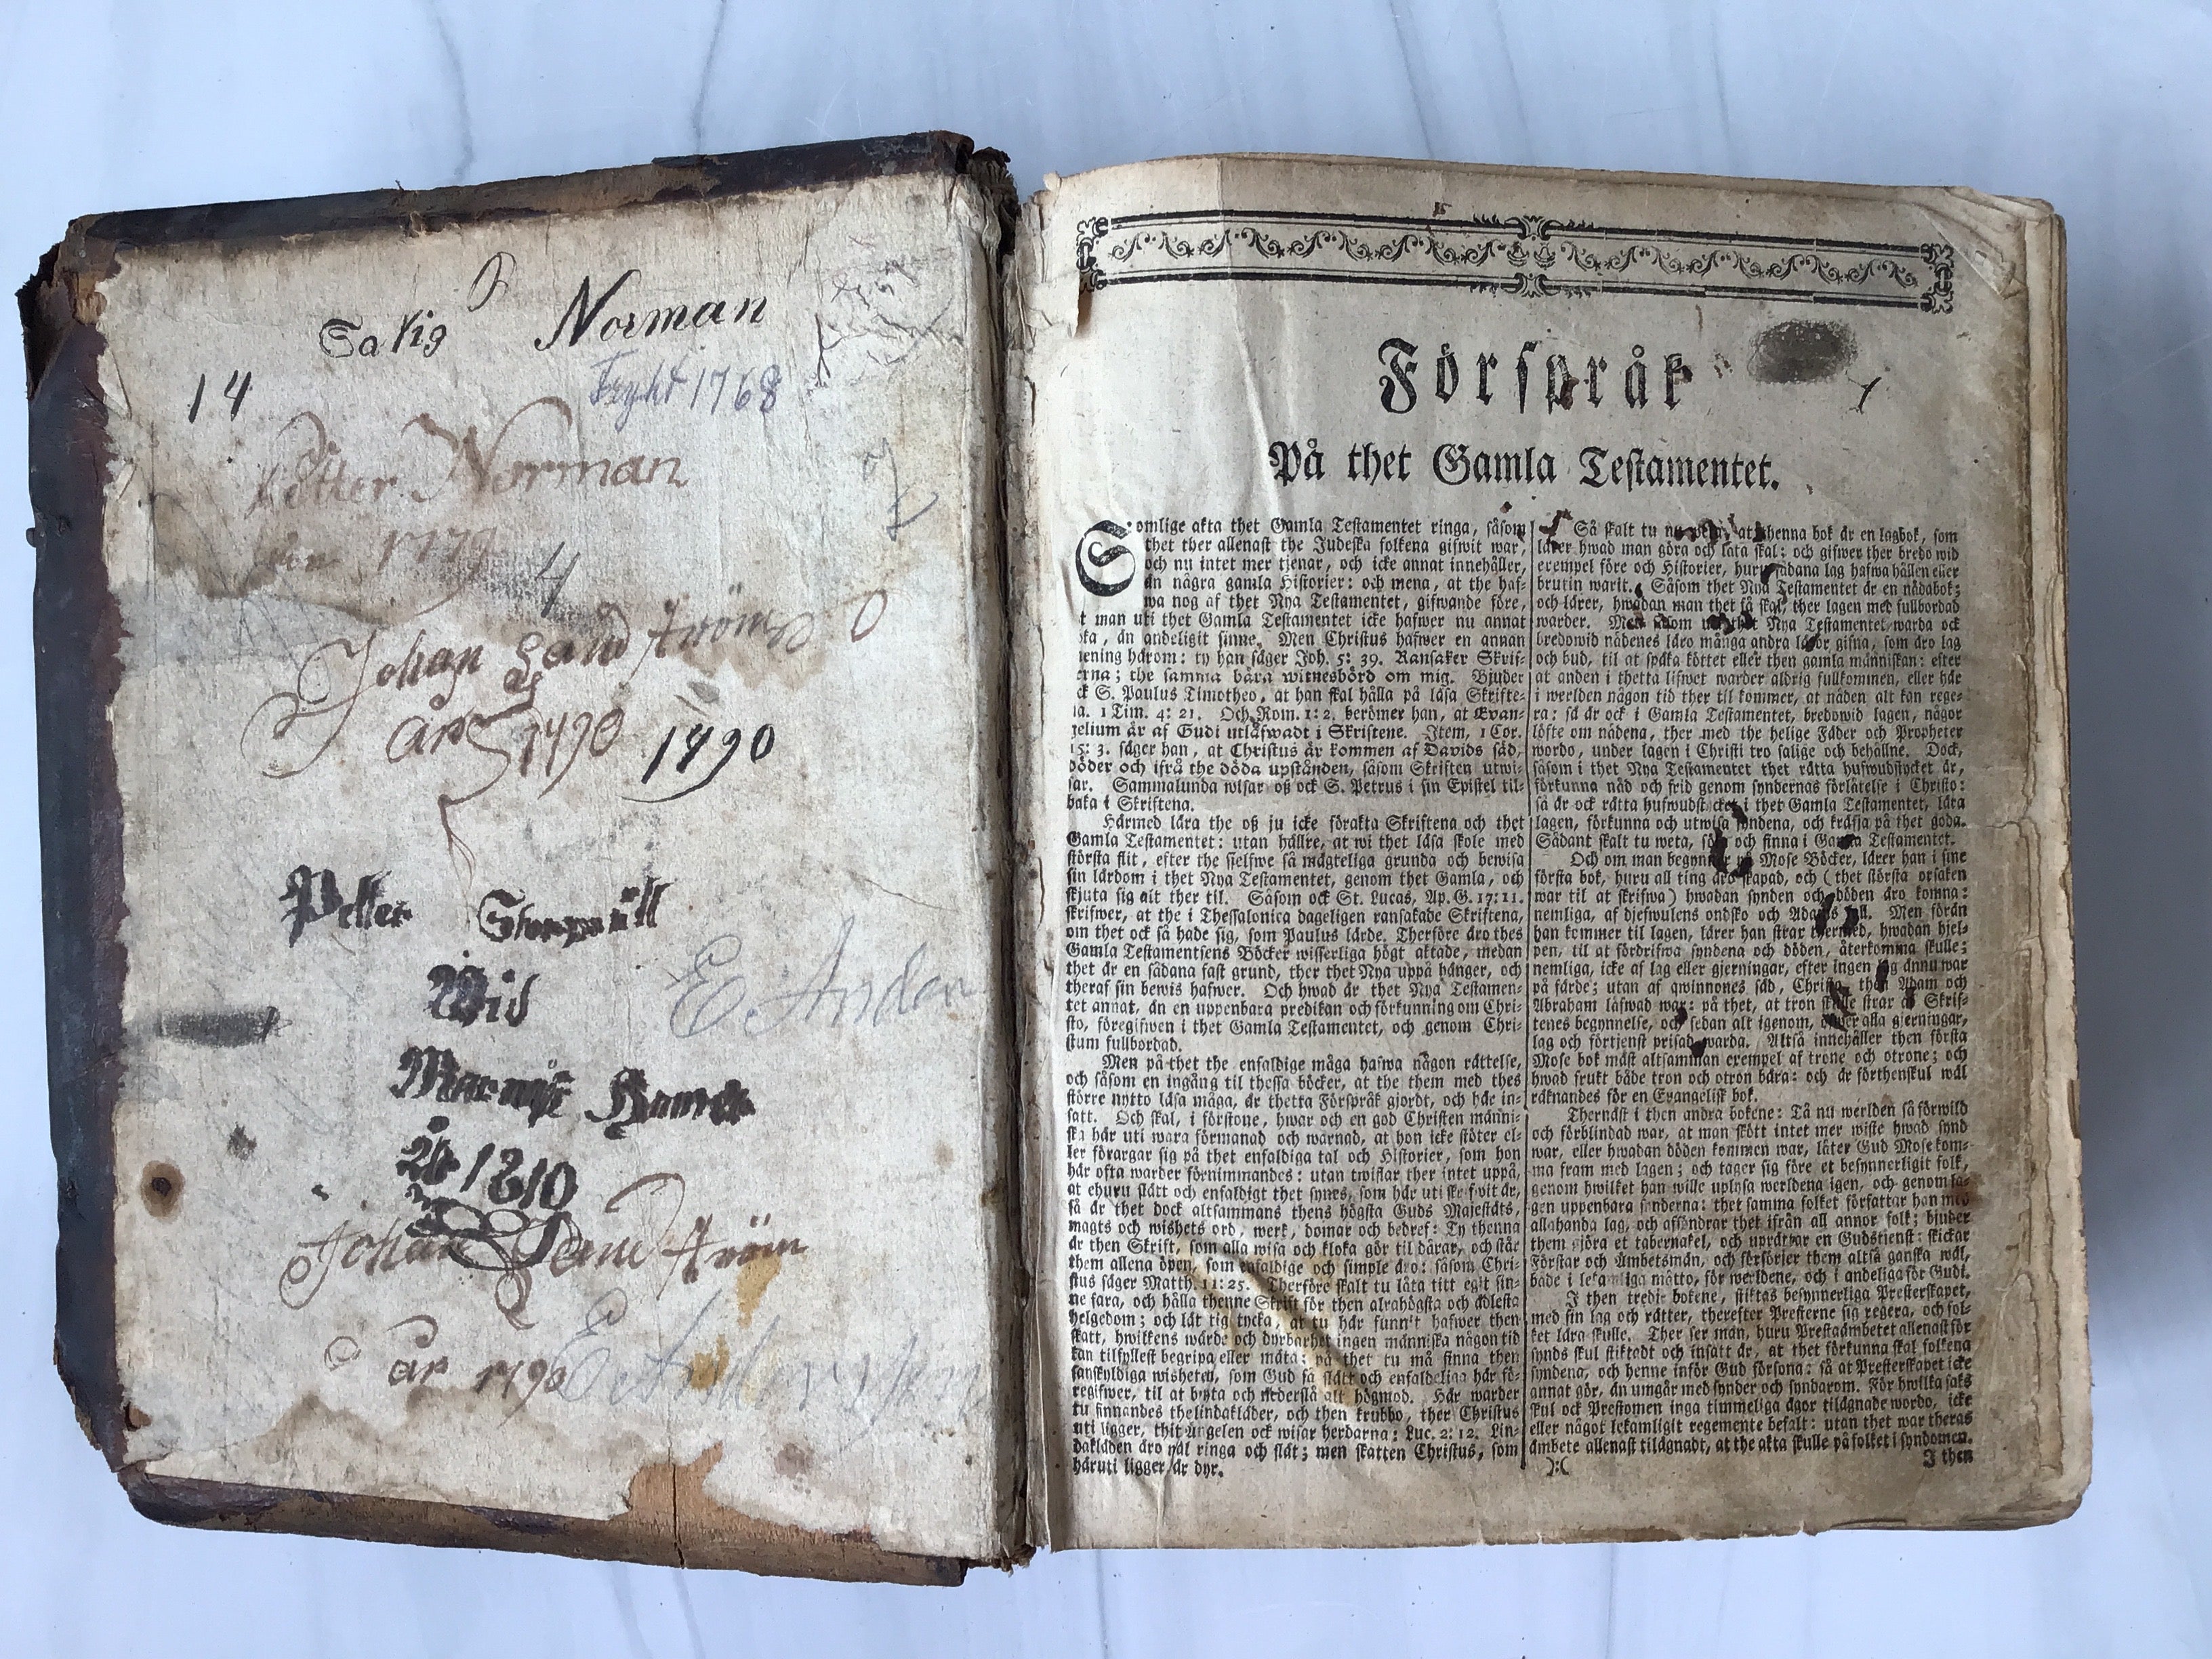 Norman
14
Tryht 1768
Petter Norman
1779
4
Johan Sandström
år 1790 1790
Petter
Wid
E. Ander
År 1810
Johan Sandström
år 1790
Förspråk
På thet Gamla Testamentet.
Somlige akta thet Gamla Testamentet ringa, såsom
thet ther allenast the Judeska folkena gifwit war,
och nu intet mer tjenar, och icke annat innehåller,
än några gamla Historier: och mena, at the haf-
wa nog af thet Nya Testamentet, gifwande före,
t man uti thet Gamla Testamentet icke hafwer nu annat
än andeligit sinne. Men Christus hafwer en annan
ening härom: ty han säger Joh. 5: 39. Ransaker Skrif-
erna; the samma bära witnesbörd om mig. Bjuder
ck S. Paulus Timotheo, at han skal hålla på läsa Skrifte-
na. 1 Tim. 4: 21. Och Rom. 1: 2. berömer han, at Evan-
gelium är af Gudi utlåfwadt i Skriftene. Item, 1 Cor.
15: 3. säger han, at Christus är kommen af Davids säd,
döder och ifrå the döda upstånden, såsom Skriften utwi-
sar. Sammalunda wisar oß ock S. Petrus i sin Epistel til-
baka i Skriftena.
Härmed lära the oß ju icke förakta Skriftena och thet
Gamla Testamentet: utan hällre, at wi thet läsa skole med
största flit, efter the sjelfwe så mägteliga grunda och bewisa
sin lärdom i thet Nya Testamentet, genom thet Gamla, och
skjuta sig alt ther til. Såsom ock St. Lucas, Ap. G. 17: 11.
skrifwer, at the i Thessalonica dageligen ransakade Skriftena,
om thet ock så hade sig, som Paulus lärde. Therföre äro thes
Gamla Testamentsens Böcker wisserliga högt aktade, medan
thet är en sådana fast grund, ther thet Nya uppå hänger, och
theraf sin bewis hafwer. Och hwad är thet Nya Testamen-
tet annat, än en uppenbara predikan och förkunning om Chri-
sto, föregifwen i thet Gamla Testamentet, och genom Chri-
stum fullbordad.
Men på thet the enfaldige måga hafwa någon rättelse,
och såsom en ingång til thessa böcker, at the them med thes
större nytto läsa måga, är thetta Förspråk gjordt, och här in-
satt. Och skal, i förstone, hwar och en god Christen männi-
ska här uti wara förmanad och warnad, at hon icke stöter el-
ler förargar sig på thet enfaldiga tal och Historier, som hon
här ofta warder förnimmandes: utan twiflar ther intet uppå,
at ehuru slätt och enfaldigt thet synes, som här uti skrifwit är,
så är thet dock altsammans thens högsta Guds Majestäts,
magts och wishets ord, werk, domar och bedref: Ty thenna
är then Skrift, som alla wisa och kloka gör til dårar, och står
them allena öpen, som enfaldige och simple äro: såsom Chri-
stus säger Matth. 11: 25. Therföre skalt tu låta titt egit sin-
ne fara, och hålla thenne Skrift för then alrahögsta och ädlesta
helgedom; och låt tig tycka, at tu här funnit hafwer then
skatt, hwilkens wärde och dyrbarhet ingen människa någon tid
kan tilfyllest begripa eller mäta: på thet tu må finna then
fanskyldiga wisheten, som Gud så slätt och enfaldeliga här fö-
regifwer, til at byta och nederslå alt högmod. Här warder
tu finnandes thelindakläder, och then krubbo, ther Christus
uti ligger, thit Ängelen ock wisar herdarna: Luc. 2: 12. Lin-
dakläden äro wäl ringa och slät; men skatten Christus, som
häruti ligger är dyr.
Så skalt tu nu weta, at thenna bok är en lagbok, som
lärer hwad man göra och låta skal: och gifwer ther bredo wid
exempel före och Historier, huru sådana lag hafwa hållen eller
brutin warit. Såsom thet Nya Testamentet är en nådabok:
och lärer, hwadan man thet få skal, ther lagen med fullbordad
warder. Men såsom uti thet Nya Testamentet warda ock
bredowid nådenes läro många andra läror gifna, som äro lag
och bud, til at späka köttet eller then gamla människan: efter
at anden i thetta lifwet warder aldrig fullkommen, eller här
i werlden någon tid ther til kommer, at nåden alt kan rege-
ra: så är ock i Gamla Testamentet, bredowid lagen, någor
löfte om nådena, ther med the helige Fäder och Propheter
wordo, under lagen i Christi tro salige och behållne. Dock,
såsom i thet Nya Testamentet thet rätta hufwudstycket är,
förkunna nåd och frid genom syndernas förlåtelse i Christo:
så är ock rätta hufwudstycket i thet Gamla Testamentet, lära
lagen, förkunna och utwisa syndena, och kräfja på thet goda.
Sådant skalt tu weta, sök och finna i Gamla Testamentet.
Och om man begynner på Mose Böcker, lärer han i sine
första bok, huru all ting äro skapad, och (thet största orsaken
war til at skrifwa) hwadan synden och döden äro komna:
nemliga, af djefwulens ondsko och Adams fall. Men förän
han kommer til lagen, lärer han strax thermed, hwadan hjel-
pen, til at fördrifwa syndena och döden, återkomma skulle;
nemliga, icke af lag eller gjerningar, efter ingen lag ännu war
på färde; utan af qwinnones säd, Christo, then Adam och
Abraham låfwad war: på thet, at tron skulle strax af Skrif-
tenes begynnelse, och sedan alt igenom, öfwer alla gjerningar,
lag och förtjenst prisad warda. Altså innehåller then första
Mose bok mäst altsamman exempel af trone och otrone; och
hwad frukt både tron och otron bära: och är förthenskul wäl
räknandes för en Evangelisk bok.
Thernäst i then andra bokene: Tå nu werlden så förwild
och förblindad war, at man skött intet mer wiste hwad synd
war, eller hwadan döden kommen war, låter Gud Mose kom-
ma fram med lagen; och tager sig före et besynnerligit folk,
genom hwilket han wille uplysa werldena igen, och genom la-
gen uppenbara synderna: thet samma folket författar han med
allahanda lag, och affändrar thet ifrån all annor folk; bjuder
them gjöra et tabernakel, och uprättar en Gudstjenst: skickar
Förstar och Ämbetsmän, och försörjer them altså ganska wäl,
både i lekamliga måtto, för werldene, och i andeliga för Gudi.
I then tredje bokene, stiktas besynnerliga Presterskapet,
med sin lag och rätter, therefter Presterne sig regera, och fol-
ket lära skulle. Ther ser man, huru Prestaämbetet allenast för
synds skul stiktadt och insatt är, at thet förkunna skal folkena
syndena, och henne inför Gud försona: så at Presterskapet icke
annat gör, än umgår med synder och syndarom. För hwilka saks
skul ock Prestomen inga timmeliga ägor tilägnade wordo, icke
eller något lekamligit regemente befalt: utan thet war theras
ämbete allenast tilägnadt, at the akta skulle på folket i syndomen.
):(
I then